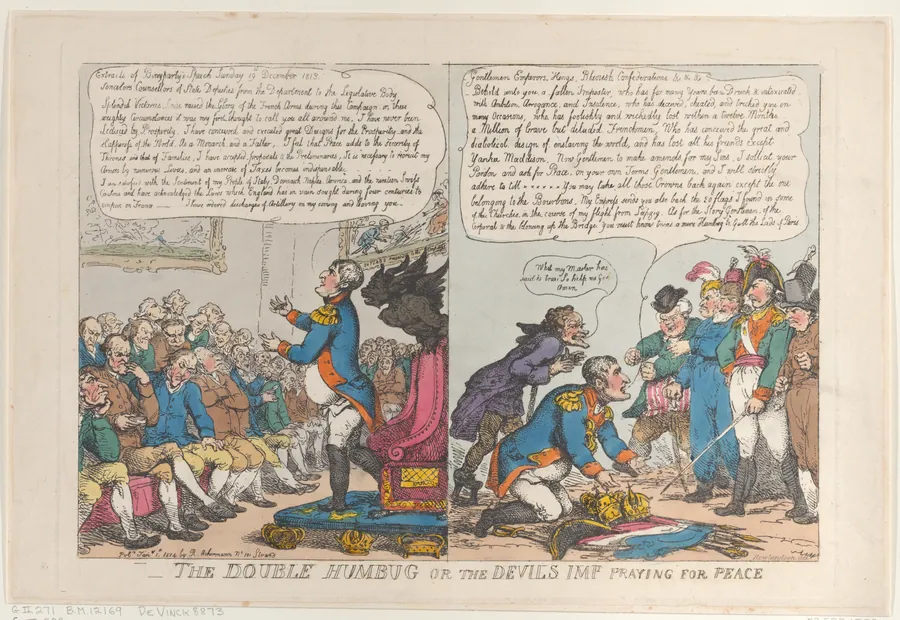 Extracts of Bonyparte's Speech Sunday 19th December 1813.
Senators Counsellors of State Deputies from the Department to the Legislative Body
Splendid Victories have raised the Glory of the French Arms during this Campaign. in these
weighty Circumstances it was my first thought to call you all around me, I have never been
seduced by Prosperity, I have conceived and executed great Designs for the Prosperity and the
Happiness of the World. As a Monarch and a Father, I feel that Peace adds to the Security of
Thrones and that of Families, I have accepted proposals to the Preliminaries, It is necessary to recruit my
Armies by numerous Levies, and an increase of Taxes becomes indispensable,
I am satisfied with the Sentiments of my People of Italy Denmark Naples America and the nineteen Swiss
Cantons and have acknowledged the Laws which England has in vain sought during four centuries to
impose on France — I have ordered discharges of Artillery on my coming and leaving you.
Gentlemen Emperors, Kings, Rhenish Confederations &c &c &c
Behold unto you a fallen Impostor, who has for many Years been Drunk & intoxicated
with Ambition, Arrogance, and Insolence, who has deceived, cheated, and tricked you on
many Occasions, who has foolishly and wickedly lost within a twelve Months
a Million of brave but deluded Frenchmen, Who has conceived the great and
diabolical design of enslaving the world, and has lost all his friends except
Yankee Maddison. Now Gentlemen to make amends for my Sins, I sollicit your
Pardon and ask for Peace, on your own Terms Gentlemen, and I will strictly
adhere to till You may take all those Crowns back again except the one
belonging to the Bourbons, My Empress sends you also back the 20 flags I found in some
of the Churches, in the course of my flight from Leipzig. As for the Story Gentlemen of the
Corporal & the Blowing up the Bridge. You must know it was a mere Humbug to Gull the Lads of Paris.
What my Master has
said is true. So help me God
Amen
Pubd Jany 1st 1814 by R. Ackermann No 101 Strand
Rowlandson
THE DOUBLE HUMBUG OR THE DEVILS IMP PRAYING FOR PEACE
G II 271 B.M. 12169 De VINCK 8873